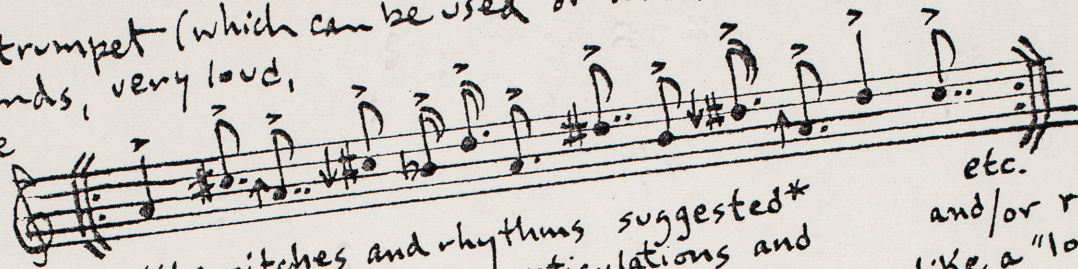 trumpet (which can be used
very loud,
etc.
pitches and rhythms suggested*
and/or
and
like a "lo